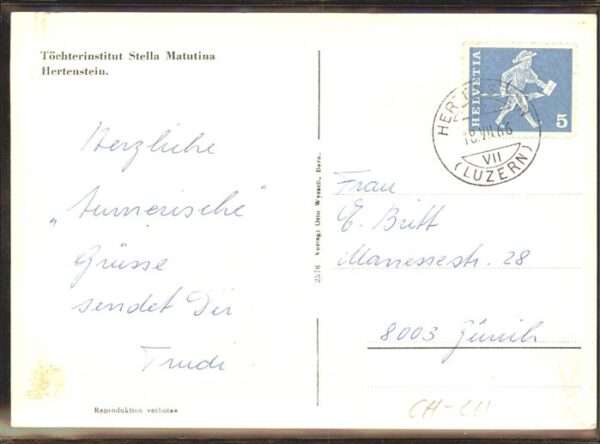 Töchterinstitut Stella Matutina
Hertenstein.
Herzliche
Grüsse
sendet Dir
Trudi
Reproduktion verboten
2576 Verlag: Otto Wyrsch, Bern.
HELVETIA
5
VII
(LUZERN)
Frau
E. Britt
Manessestr. 28
8003 Zürich